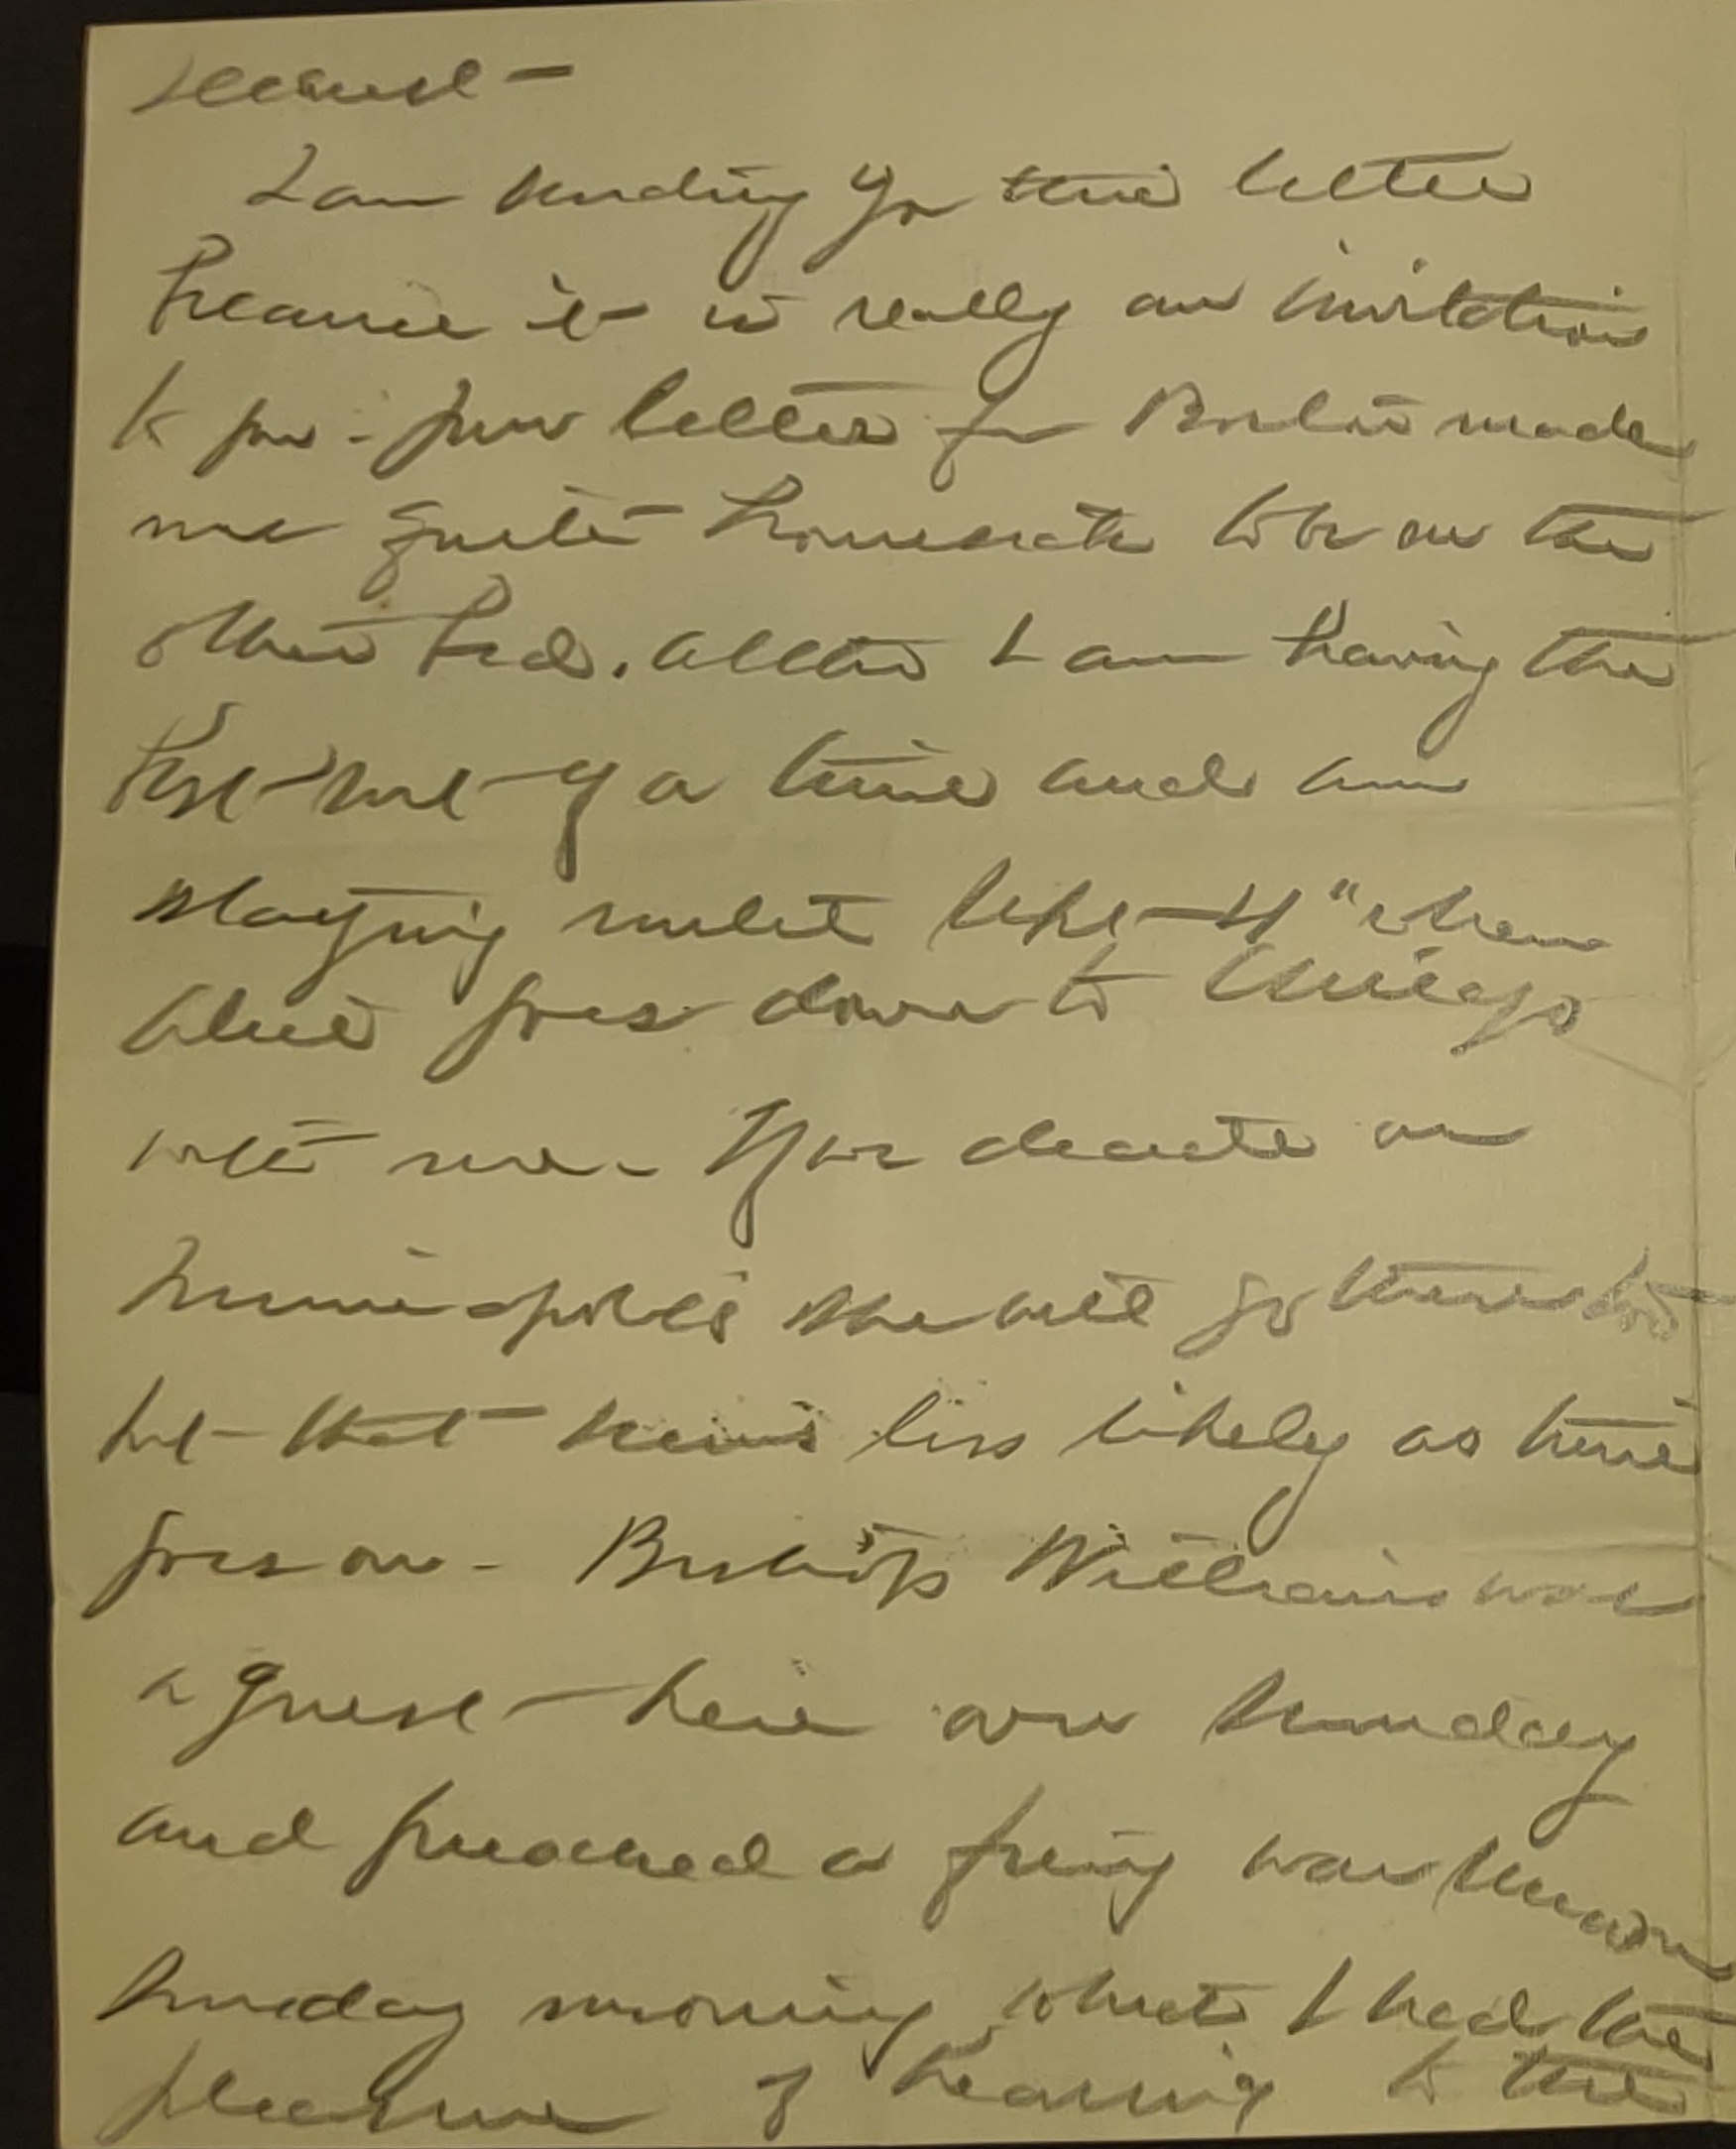 Dearest –
I am sending you this letter
because it is really an invitation
to you – your letter from Boston made
me quite homesick to be on the
other bed. Altho I am having the
best sort of a time and am
staying until the "when
Alice goes down to Chicago
with me. If we decide on
Minneapolis she will go there too
but that seems less likely as time
goes on – Bishop Williams was
a guest here over Sunday
and preached a fring war sermon
Sunday morning which I had the
pleasure of hearing to the